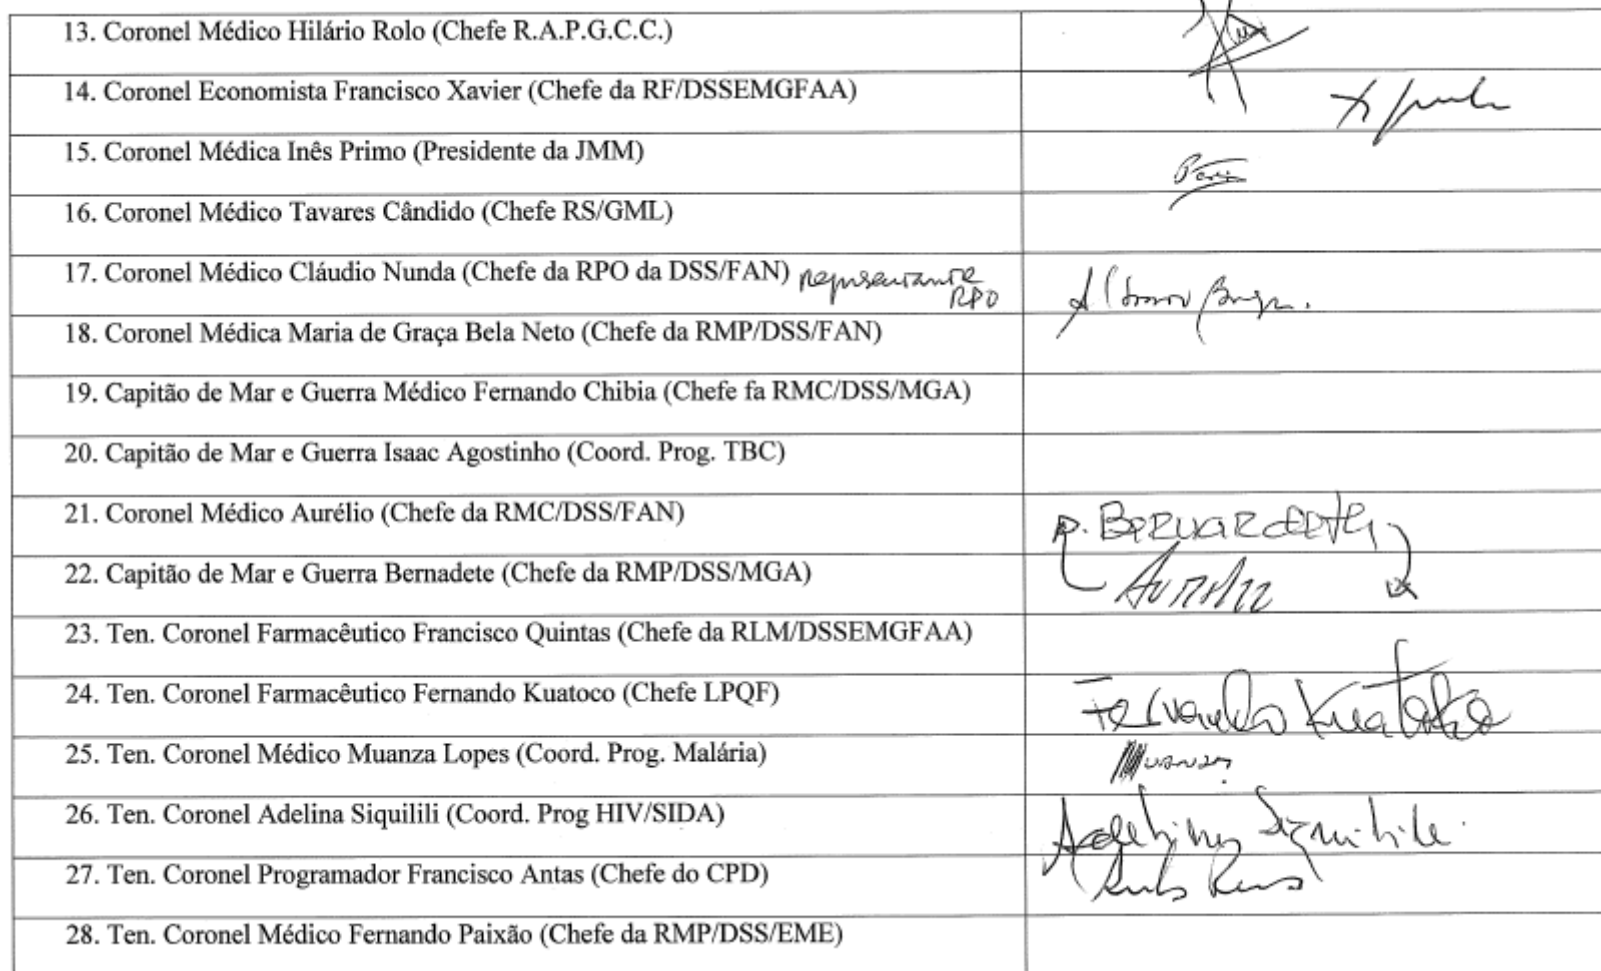 13. Coronel Médico Hilário Rolo (Chefe R.A.P.G.C.C.)
14. Coronel Economista Francisco Xavier (Chefe da RF/DSSEMGFAA)
15. Coronel Médica Inês Primo (Presidente da JMM)
16. Coronel Médico Tavares Cândido (Chefe RS/GML)
17. Coronel Médico Cláudio Nunda (Chefe da RPO da DSS/FAN) representante
RPO
18. Coronel Médica Maria de Graça Bela Neto (Chefe da RMP/DSS/FAN)
19. Capitão de Mar e Guerra Médico Fernando Chibia (Chefe fa RMC/DSS/MGA)
20. Capitão de Mar e Guerra Isaac Agostinho (Coord. Prog. TBC)
21. Coronel Médico Aurélio (Chefe da RMC/DSS/FAN)
22. Capitão de Mar e Guerra Bernadete (Chefe da RMP/DSS/MGA)
23. Ten. Coronel Farmacêutico Francisco Quintas (Chefe da RLM/DSSEMGFAA)
24. Ten. Coronel Farmacêutico Fernando Kuatoco (Chefe LPQF) Fernando
25. Ten. Coronel Médico Muanza Lopes (Coord. Prog. Malária)
26. Ten. Coronel Adelina Siquilili (Coord. Prog HIV/SIDA)
27. Ten. Coronel Programador Francisco Antas (Chefe do CPD)
28. Ten. Coronel Médico Fernando Paixão (Chefe da RMP/DSS/EME)